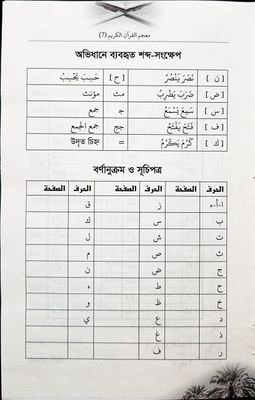 معجم القرآن الكريم (7)
অভিধানে ব্যবহৃত শব্দ-সংক্ষেপ
[ ن ] نَصَرَ يَنْصُرُ [ ح ] حَسِبَ يَحْسِبُ
[ ض ] ضَرَبَ يَضْرِبُ مث مؤنث
[ س ] سَمِعَ يَسْمَعُ جـ جمع
[ ف ] فَتَحَ يَفْتَحُ جج جمع الجمع
[ ك ] كَرُمَ يَكْرُمُ = উদ্ধৃত চিহ্ন
বর্ণানুক্রম ও সূচিপত্র
الحرف الصفحة الحرف الصفحة الحرف الصفحة
ا-أ-ء ز ق
ب س ك
ت ش ل
ث ص م
ج ض ن
ح ط ه
خ ظ و
د ع ي
ذ غ
ر ف